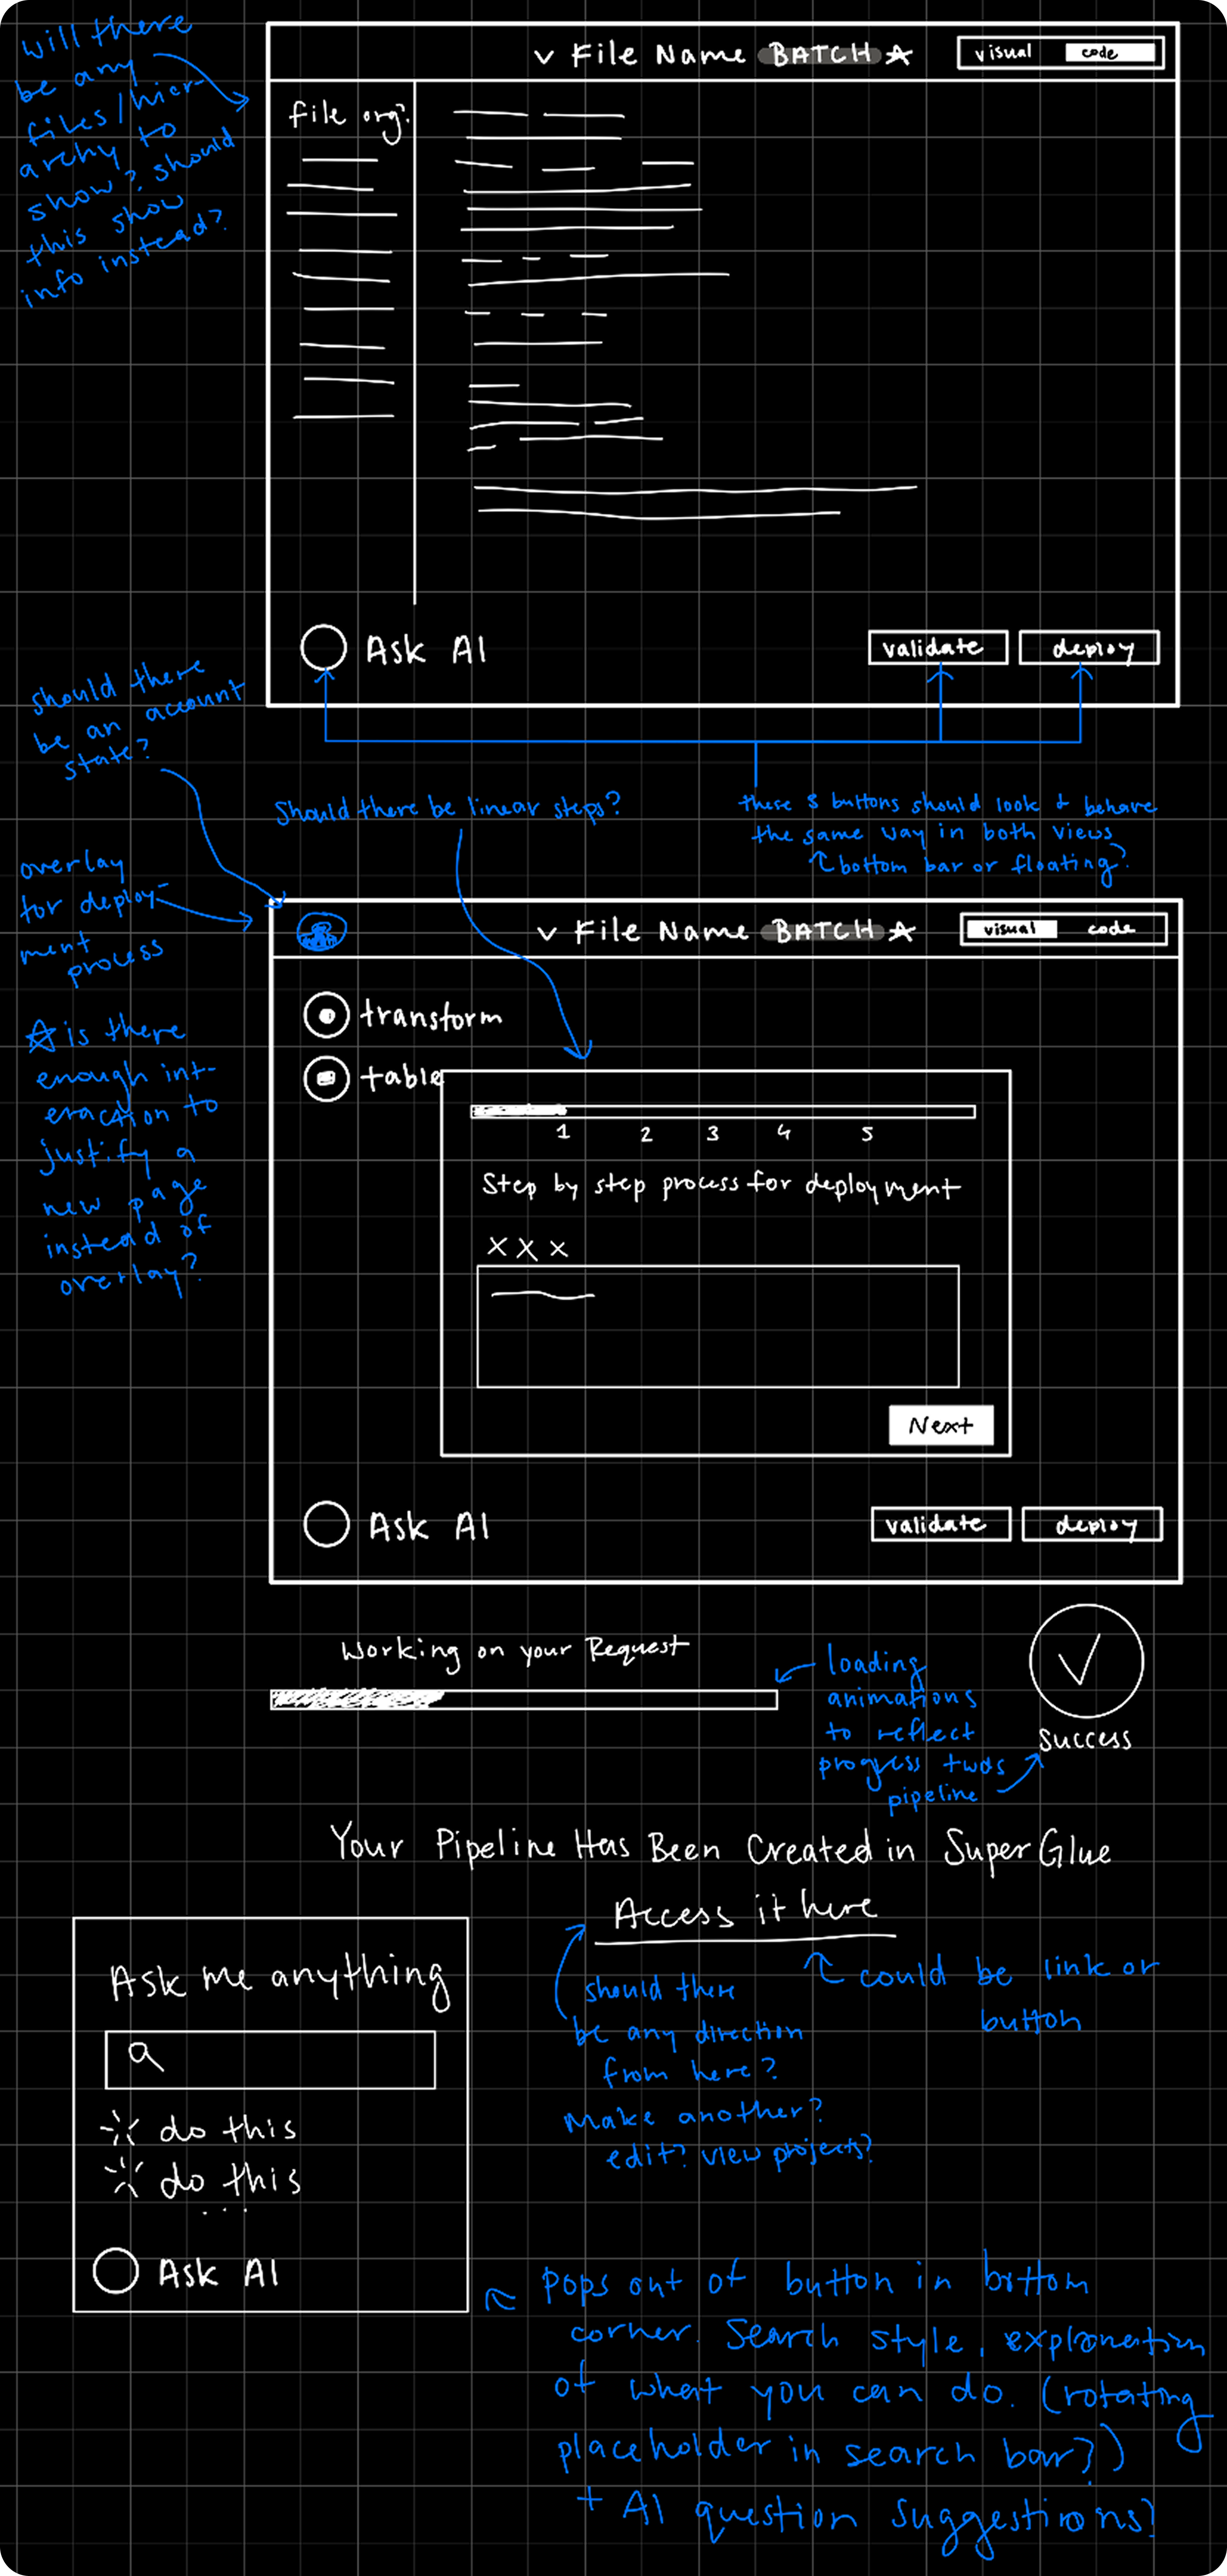 will there
be any
files/hier-
archy to
show? should
this show
info instead?
v File Name BATCH ☆
visual code
file org?
Ask AI
validate
deploy
should there
be an account
state?
Should there be linear steps?
these 3 buttons should look + behave
the same way in both views
↑ bottom bar or floating?
overlay
for deploy-
ment
process
☆ is there
enough int-
eraction to
justify a
new page
instead of
overlay?
v File Name BATCH ☆
visual code
transform
table
1 2 3 4 5
Step by step process for deployment
X X X
Next
Ask AI
validate
deploy
Working on your Request
← loading
animations
to reflect
progress twds
pipeline
success
Your Pipeline Has Been Created in SuperGlue
Access it here
↑ could be link or
button
should there
be any direction
from here?
Make another?
edit? view projects?
Ask me anything
do this
do this
...
Ask AI
pops out of button in bottom
corner. Search style, explanation
of what you can do. (rotating
placeholder in search bar?)
+ AI question suggestions?